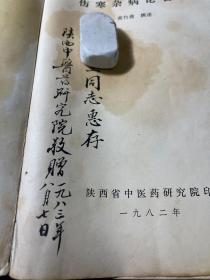 伤寒杂病论
黄竹斋 撰述
同志惠存
陕西中医药研究院敬赠 一九八三年
八月七日
陕西省中医药研究院印
一九八二年